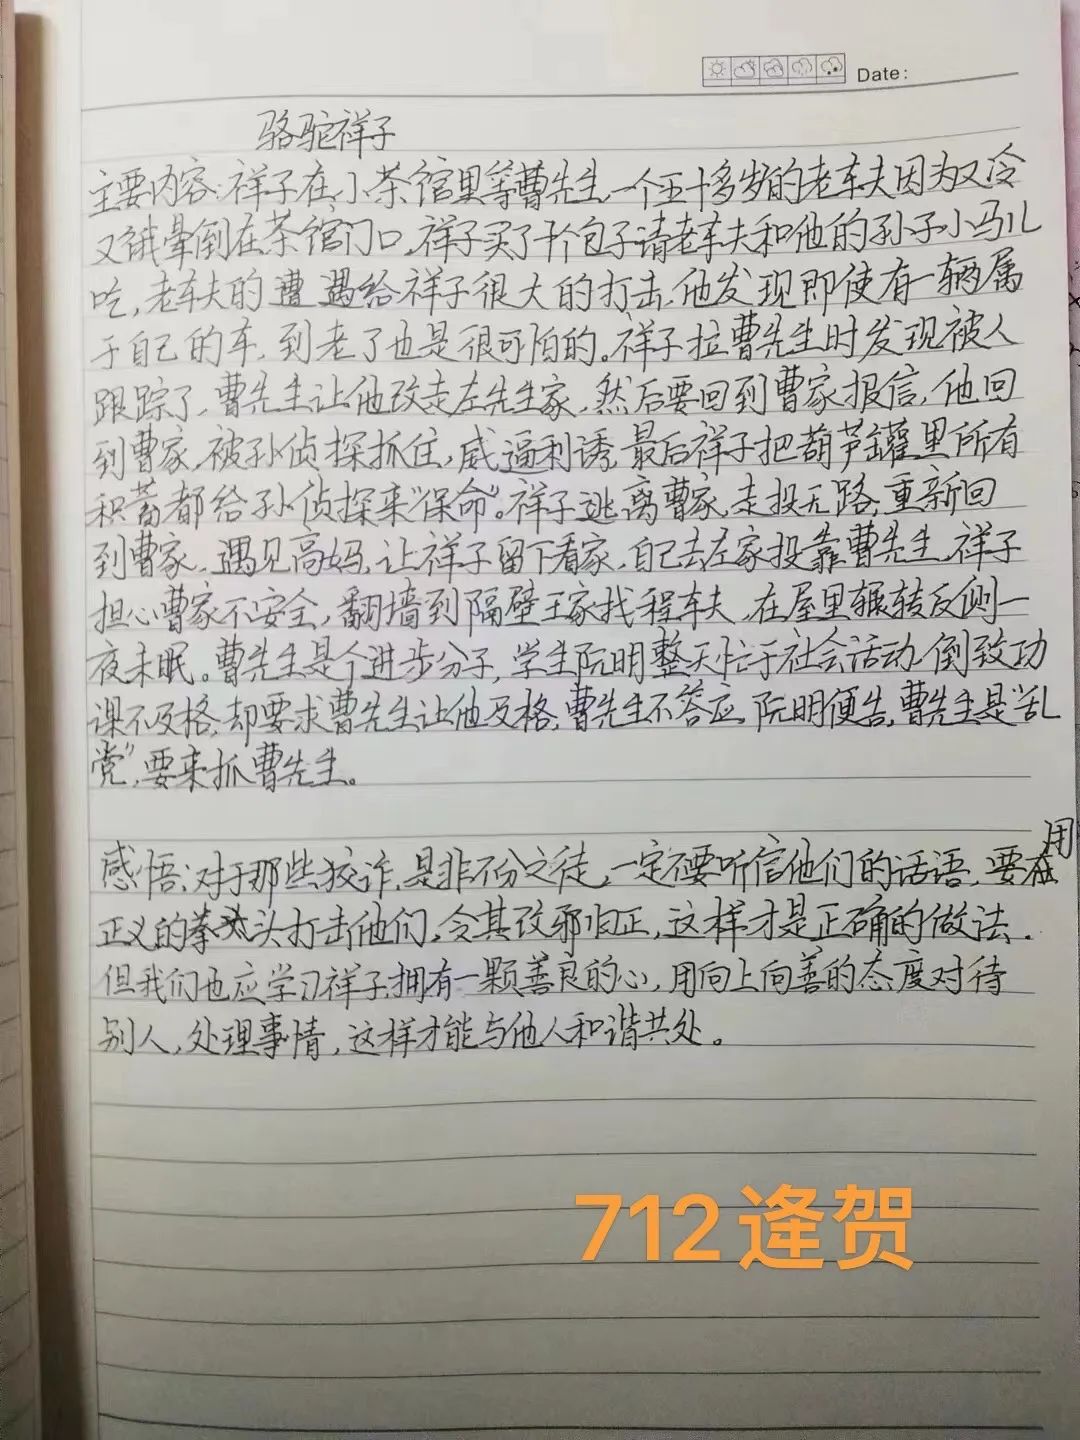 Date:
骆驼祥子
主要内容:祥子在小茶馆里等曹先生,一个五十多岁的老车夫因为又冷
又饿晕倒在茶馆门口,祥子买了十个包子请老车夫和他的孙子小马儿
吃,老车夫的遭遇给祥子很大的打击,他发现即使有一辆属
于自己的车,到老了也是很可怕的。祥子拉曹先生时发现被人
跟踪了,曹先生让他改走左先生家,然后要回到曹家报信,他回
到曹家,被孙侦探抓住,威逼利诱,最后祥子把葫芦罐里所有
积蓄都给孙侦探来“保命”。祥子逃离曹家,走投无路,重新回
到曹家,遇见高妈,让祥子留下看家,自己去左家投靠曹先生,祥子
担心曹家不安全,翻墙到隔壁王家找程车夫,在屋里辗转反侧一
夜未眠。曹先生是个进步分子,学生阮明整天忙于社会活动,倒致功
课不及格,却要求曹先生让他及格,曹先生不答应,阮明便告,曹先生是“乱
党”,要来抓曹先生。
感悟:对于那些狡诈,是非不分之徒,一定不要听信他们的话语,要用
正义的拳头打击他们,令其改邪归正,这样才是正确的做法.
但我们也应学习祥子,拥有一颗善良的心,用向上向善的态度对待
别人,处理事情,这样才能与他人和谐共处。
712逢贺